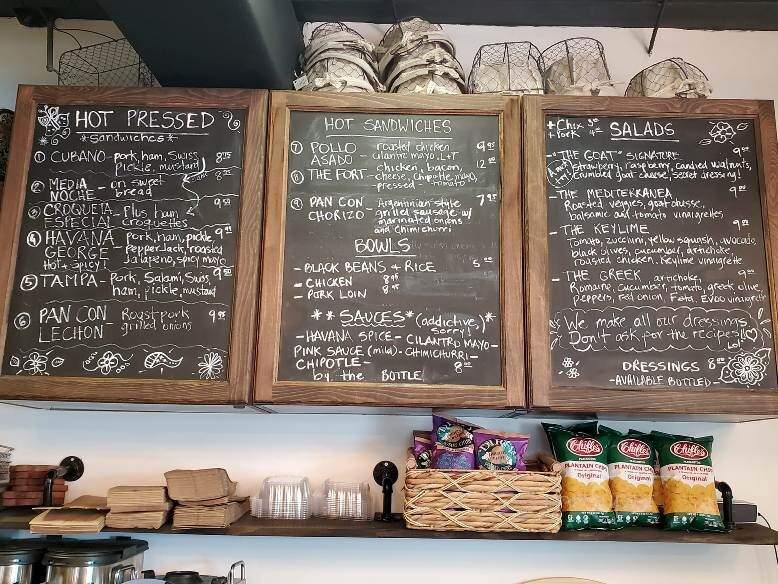 HOT PRESSED
*Sandwiches*
① CUBANO - pork, ham, Swiss, pickle, mustard 8
② MEDIA NOCHE - on sweet bread
③ CROQUETA ESPECIAL - Plus ham croquettes 9.50
④ HAVANA GEORGE - Pork, ham, pickle 9
HOT + Spicy! pepperJack, roasted Jalapeño, spicy mayo
⑤ TAMPA - Pork, Salami, Swiss, ham, pickle, mustard 9
⑥ PAN CON LECHON - Roast pork grilled onions
HOT SANDWICHES
⑦ POLLO ASADO - roasted chicken 9
cilantro mayo, L+T
⑧ THE FORT - chicken, bacon, 12
cheese, Chipotle mayo,
- pressed - tomato
⑨ PAN CON CHORIZO - Argentinian-style 7
grilled sausage w/
marinated onions
and chimichurri
BOWLS
- BLACK BEANS + RICE 5
- CHICKEN 8
- PORK LOIN 8
** SAUCES * (addictive, sorry!) *
- HAVANA SPICE - CILANTRO MAYO -
PINK SAUCE (mild) - CHIMICHURRI -
CHIPOTLE -
by the BOTTLE 8
+ Chix
+ Pork
SALADS
- "THE GOAT" SIGNATURE 9
Strawberry, raspberry, candied walnuts,
crumbled goat cheese, secret dressing!
- THE MEDITERRANEA 9
Roasted veggies, goat cheese,
balsamic and tomato vinaigrettes
- THE KEYLIME 9
Tomato, zucchini, yellow squash, avocado,
black olives, cucumber, artichoke
roasted chicken. Keylime vinaigrette
- THE GREEK artichoke, 9
Romaine, cucumber, tomato, greek olive,
peppers, red onion, Feta, EVOO vinaigrette
We make all our dressings
Don't ask for the recipes!
Lol
DRESSINGS 8
- AVAILABLE BOTTLED -
Chifles
PLANTAIN CHIPS
Original
Chifles
PLANTAIN CHIPS
Original
Chifles
PLANTAIN CHIPS
Original